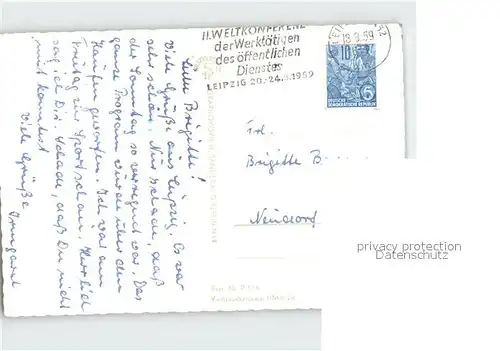 Liebe Brigitte!
Viele Grüße aus Leipzig. Es war
sehr schön. Nur schade, daß
der Sonntag so verregnet war. Das
ganze Programm wurde über den
Haufen geworfen. Ich war am
Freitag zur Sportschau. Herrlich
sag ich Dir. Schade, daß Du nicht
mit konntest.
Viele Grüße
Irmgard
II. WELTKONFERENZ
der Werktätigen
des öffentlichen
Dienstes
LEIPZIG 20.-24.3.1959
18.3.59
10
5
DEUTSCHE
DEMOKRATISCHE REPUBLIK
Frl.
Brigitte B
Neudorf
privacy protection
Datenschutz